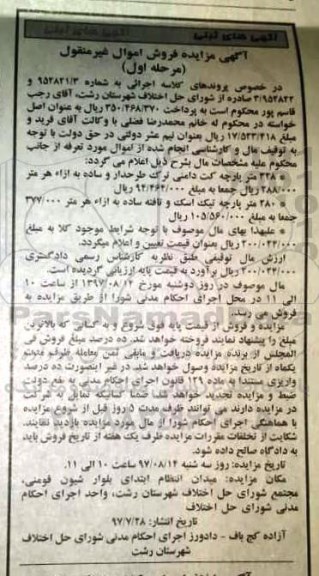 آگهی های ثبتی
آگهی های ثبتی
آگهی مزایده فروش اموال غیرمنقول
(مرحله اول)
در خصوص پرونده‌های کلاسه اجرائی به شماره ۹۵۲۸۲۱/۳
۳/۹۵۲۸۲۲ صادره از شورای حل اختلاف شهرستان رشت، آقای رجب
قاسم پور محکوم است به پرداخت ۳۵۰/۴۶۸/۳۷۰ ریال به عنوان اصل
خواسته در محکوم له خانم محمدرضا فضلی با وکالت آقای فرید و
مبلغ ۱۷/۵۲۳/۴۱۸ ریال بعنوان نیم عشر دولتی در حق دولت با توجه
به توقیف مال و کارشناسی انجام شده از اموال مورد تعرفه از جانب
محکوم علیه مشخصات مال بشرح ذیل اعلام می گردد:
* ۳۲۸ متر پارچه کت دامنی ترک طرحدار و ساده به ازاء هر متر
۲۸۸/۰۰۰ ریال جمعا به مبلغ ۹۴/۴۶۴/۰۰۰ ریال
* ۲۸۰ متر پارچه نیک اسک و تافته ساده به ازاء هر متر ۳۷۷/۰۰۰
جمعا به مبلغ ۱۰۵/۵۶۰/۰۰۰ ریال
* علیهذا بهای مال موصوف با توجه شرایط موجود کلا به مبلغ
۲۰۰/۰۲۴/۰۰۰ ریال بعنوان قیمت تعیین و اعلام میگردد.
ارزش مال توقیفی طبق نظریه کارشناس رسمی دادگستری
۲۰۰/۰۲۴/۰۰۰ ریال برآورد به قیمت پایه ارزیابی گردیده است.
مال موصوف در روز دوشنبه مورخ ۱۳۹۷/۰۸/۱۴ از ساعت ۱۰
الی ۱۱ در محل اجرای احکام مدنی شورا از طریق مزایده به
فروش می رسد.
مزایده و فروش از قیمت پایه فوق شروع و به کسانی که بالاترین
مبلغ را پیشنهاد نمایند فروخته خواهد شد. ده درصد مبلغ فروش فی
المجلس از برنده مزایده دریافت و مابقی ثمن معامله ظرف مدت
یکماه از تاریخ مزایده وصول خواهد شد. در غیر اینصورت ده درصد
واریزی مستندا به ماده ۱۲۹ قانون اجرای احکام مدنی به نفع دولت
ضبط و مزایده تجدید خواهد شد. ضمنا کسانیکه تمایل به شرکت
در مزایده دارند می توانند ظرف مدت ۵ روز قبل از شروع مزایده
با هماهنگی اجرای احکام شورا از مال مورد مزایده بازدید نمایند.
شکایت از تخلفات مقررات مزایده ظرف یک هفته از تاریخ فروش باید
به دادگاه صالح داده شود.
تاریخ مزایده: روز سه شنبه ۹۷/۰۸/۱۴ ساعت ۱۰ الی ۱۱.
مکان مزایده: میدان انتظام ابتدای بلوار شیون فومنی،
مجتمع شورای حل اختلاف شهرستان رشت، واحد اجرای احکام
مدنی شورای حل اختلاف
تاریخ انتشار: ۹۷/۷/۲۸
آزاده کچ باف - دادورز اجرای احکام مدنی شورای حل اختلاف
شهرستان رشت
ParsNamadData